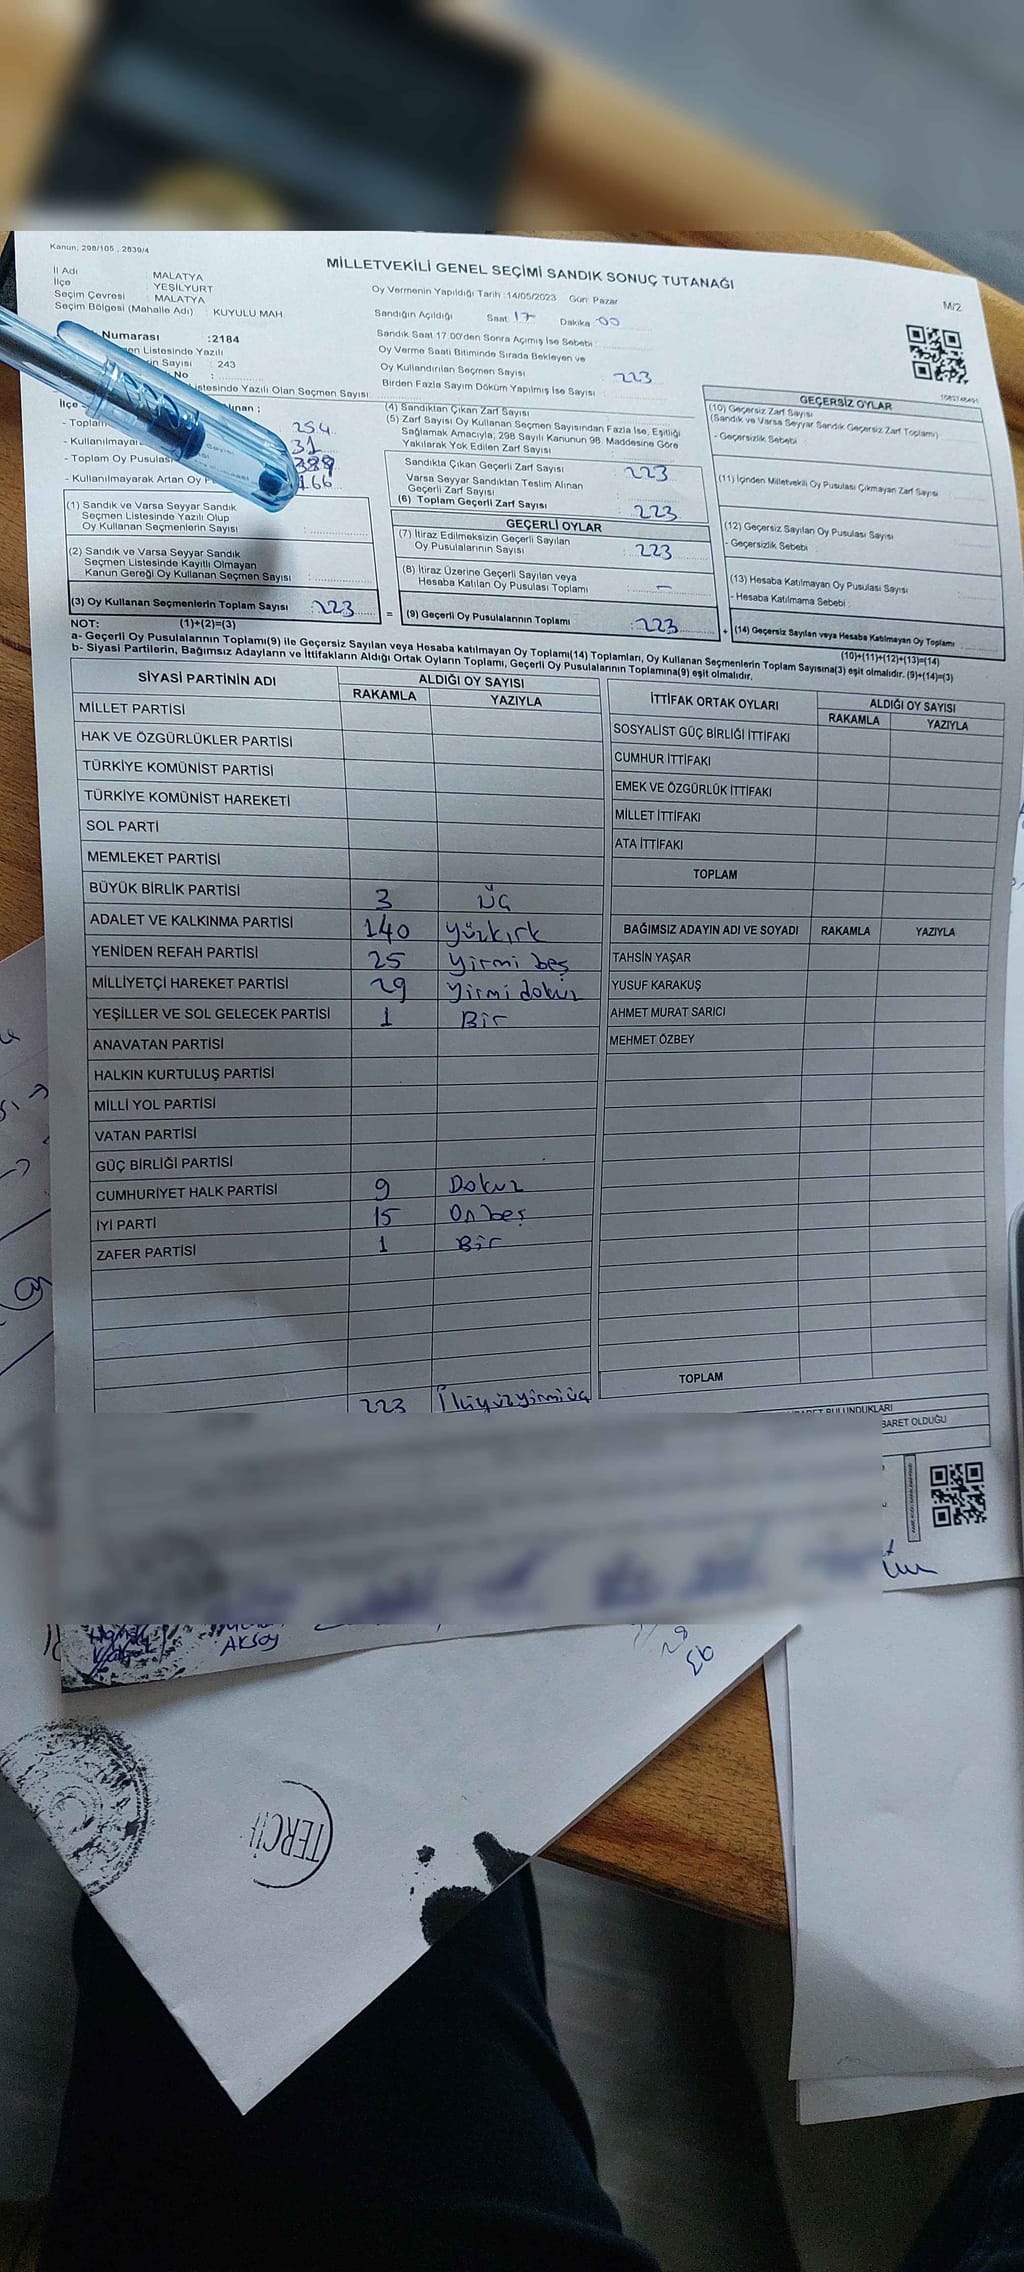 Kanun, 298/105 , 2839/4
MİLLETVEKİLİ GENEL SEÇİMİ SANDIK SONUÇ TUTANAĞI
M/2
İl Adı : MALATYA
İlçe : YEŞİLYURT
Seçim Çevresi : MALATYA
Seçim Bölgesi (Mahalle Adı) : KUYULU MAH.
Oy Vermenin Yapıldığı Tarih :14/05/2023 Gün: Pazar
Sandığın Açıldığı Saat 17 Dakika :00
Sandık Saat 17:00'den Sonra Açımış İse Sebebi :
Oy Verme Saati Bitiminde Sırada Bekleyen ve
Oy Kullandırılan Seçmen Sayısı : 223
Birden Fazla Sayım Döküm Yapılmış İse Sayısı :
Numarası :2184
Listesinde Yazılı
Sayısı : 243
No :
Listesinde Yazılı Olan Seçmen Sayısı
İlçe
- Toplam 254
- Kullanılmayar 31
- Toplam Oy Pusulası
- Kullanılmayarak Artan Oy 166
(1) Sandık ve Varsa Seyyar Sandık
Seçmen Listesinde Yazılı Olup
Oy Kullanan Seçmenlerin Sayısı :
(2) Sandık ve Varsa Seyyar Sandık
Seçmen Listesinde Kayıtlı Olmayan
Kanun Gereği Oy Kullanan Seçmen Sayısı :
(3) Oy Kullanan Seçmenlerin Toplam Sayısı : 223
(4) Sandıktan Çıkan Zarf Sayısı
(5) Zarf Sayısı Oy Kullanan Seçmen Sayısından Fazla İse, Eşitliği
Sağlamak Amacıyla; 298 Sayılı Kanunun 98. Maddesine Göre
Yakılarak Yok Edilen Zarf Sayısı :
Sandıkta Çıkan Geçerli Zarf Sayısı : 223
Varsa Seyyar Sandıktan Teslim Alınan
Geçerli Zarf Sayısı :
(6) Toplam Geçerli Zarf Sayısı : 223
GEÇERLİ OYLAR
(7) İtiraz Edilmeksizin Geçerli Sayılan
Oy Pusulalarının Sayısı : 223
(8) İtiraz Üzerine Geçerli Sayılan veya
Hesaba Katılan Oy Pusulası Toplamı : -
= (9) Geçerli Oy Pusulalarının Toplamı : 223
GEÇERSİZ OYLAR
(10) Geçersiz Zarf Sayısı
(Sandık ve Varsa Seyyar Sandık Geçersiz Zarf Toplamı)
- Geçersizlik Sebebi :
(11) İçinden Milletvekili Oy Pusulası Çıkmayan Zarf Sayısı
(12) Geçersiz Sayılan Oy Pusulası Sayısı
- Geçersizlik Sebebi :
(13) Hesaba Katılmayan Oy Pusulası Sayısı
- Hesaba Katılmama Sebebi :
+ (14) Geçersiz Sayılan veya Hesaba Katılmayan Oy Toplamı
NOT: (1)+(2)=(3)
(10)+(11)+(12)+(13)=(14)
a- Geçerli Oy Pusulalarının Toplamı(9) ile Geçersiz Sayılan veya Hesaba katılmayan Oy Toplamı(14) Toplamları, Oy Kullanan Seçmenlerin Toplam Sayısına(3) eşit olmalıdır. (9)+(14)=(3)
b- Siyasi Partilerin, Bağımsız Adayların ve İttifakların Aldığı Ortak Oyların Toplamı, Geçerli Oy Pusulalarının Toplamına(9) eşit olmalıdır.
SİYASİ PARTİNİN ADI ALDIĞI OY SAYISI
RAKAMLA YAZIYLA
MİLLET PARTİSİ
HAK VE ÖZGÜRLÜKLER PARTİSİ
TÜRKİYE KOMÜNİST PARTİSİ
TÜRKİYE KOMÜNİST HAREKETİ
SOL PARTİ
MEMLEKET PARTİSİ
BÜYÜK BİRLİK PARTİSİ 3 Üç
ADALET VE KALKINMA PARTİSİ 140 Yüzkırk
YENİDEN REFAH PARTİSİ 25 Yirmi beş
MİLLİYETÇİ HAREKET PARTİSİ 29 Yirmi dokuz
YEŞİLLER VE SOL GELECEK PARTİSİ 1 Bir
ANAVATAN PARTİSİ
HALKIN KURTULUŞ PARTİSİ
MİLLİ YOL PARTİSİ
VATAN PARTİSİ
GÜÇ BİRLİĞİ PARTİSİ
CUMHURİYET HALK PARTİSİ 9 Dokuz
İYİ PARTİ 15 On beş
ZAFER PARTİSİ 1 Bir
223 İkiyüzyirmiüç
İTTİFAK ORTAK OYLARI ALDIĞI OY SAYISI
RAKAMLA YAZIYLA
SOSYALİST GÜÇ BİRLİĞİ İTTİFAKI
CUMHUR İTTİFAKI
EMEK VE ÖZGÜRLÜK İTTİFAKI
MİLLET İTTİFAKI
ATA İTTİFAKI
TOPLAM
BAĞIMSIZ ADAYIN ADI VE SOYADI RAKAMLA YAZIYLA
TAHSİN YAŞAR
YUSUF KARAKUŞ
AHMET MURAT SARICI
MEHMET ÖZBEY
TOPLAM
BULUNDUKLARI
BARET OLDUĞU
AKSOY
TERCİH